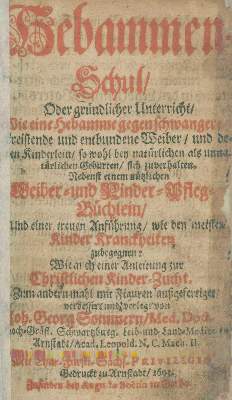 Hebammen-
Schul/
Oder gründlicher Unterricht/
Wie eine Hebamme gegen schwangere/
kreistende und entbundene Weiber/ und de-
ren Kinderlein/ so wohl bey natürlichen als unna-
türlichen Geburten/ sich zuverhalten.
Nebenst einem nützlichen
Weiber- und Kinder-Pfleg-
Büchlein/
Und einer treuen Anführung/ wie den meisten
Kinder Kranckheiten
zubegegnen:
Wie auch einer Anleitung zur
Christlichen Kinder-Zucht.
Zum andern mahl mit Figuren außgefertiget
verbessert und verlegt von
Joh. Georg Sommern/ Med. Doct.
Hoch-Gräfl. Schwartzburg. Leib- und Land-Medico
Arnstadt/ Acad. Leopold. N. C. Mem. II.
Mit Chur-Fürstl. Sächs. PRIVILEGIO
Gedruckt zu Arnstadt/ 1691.
Zufinden bey